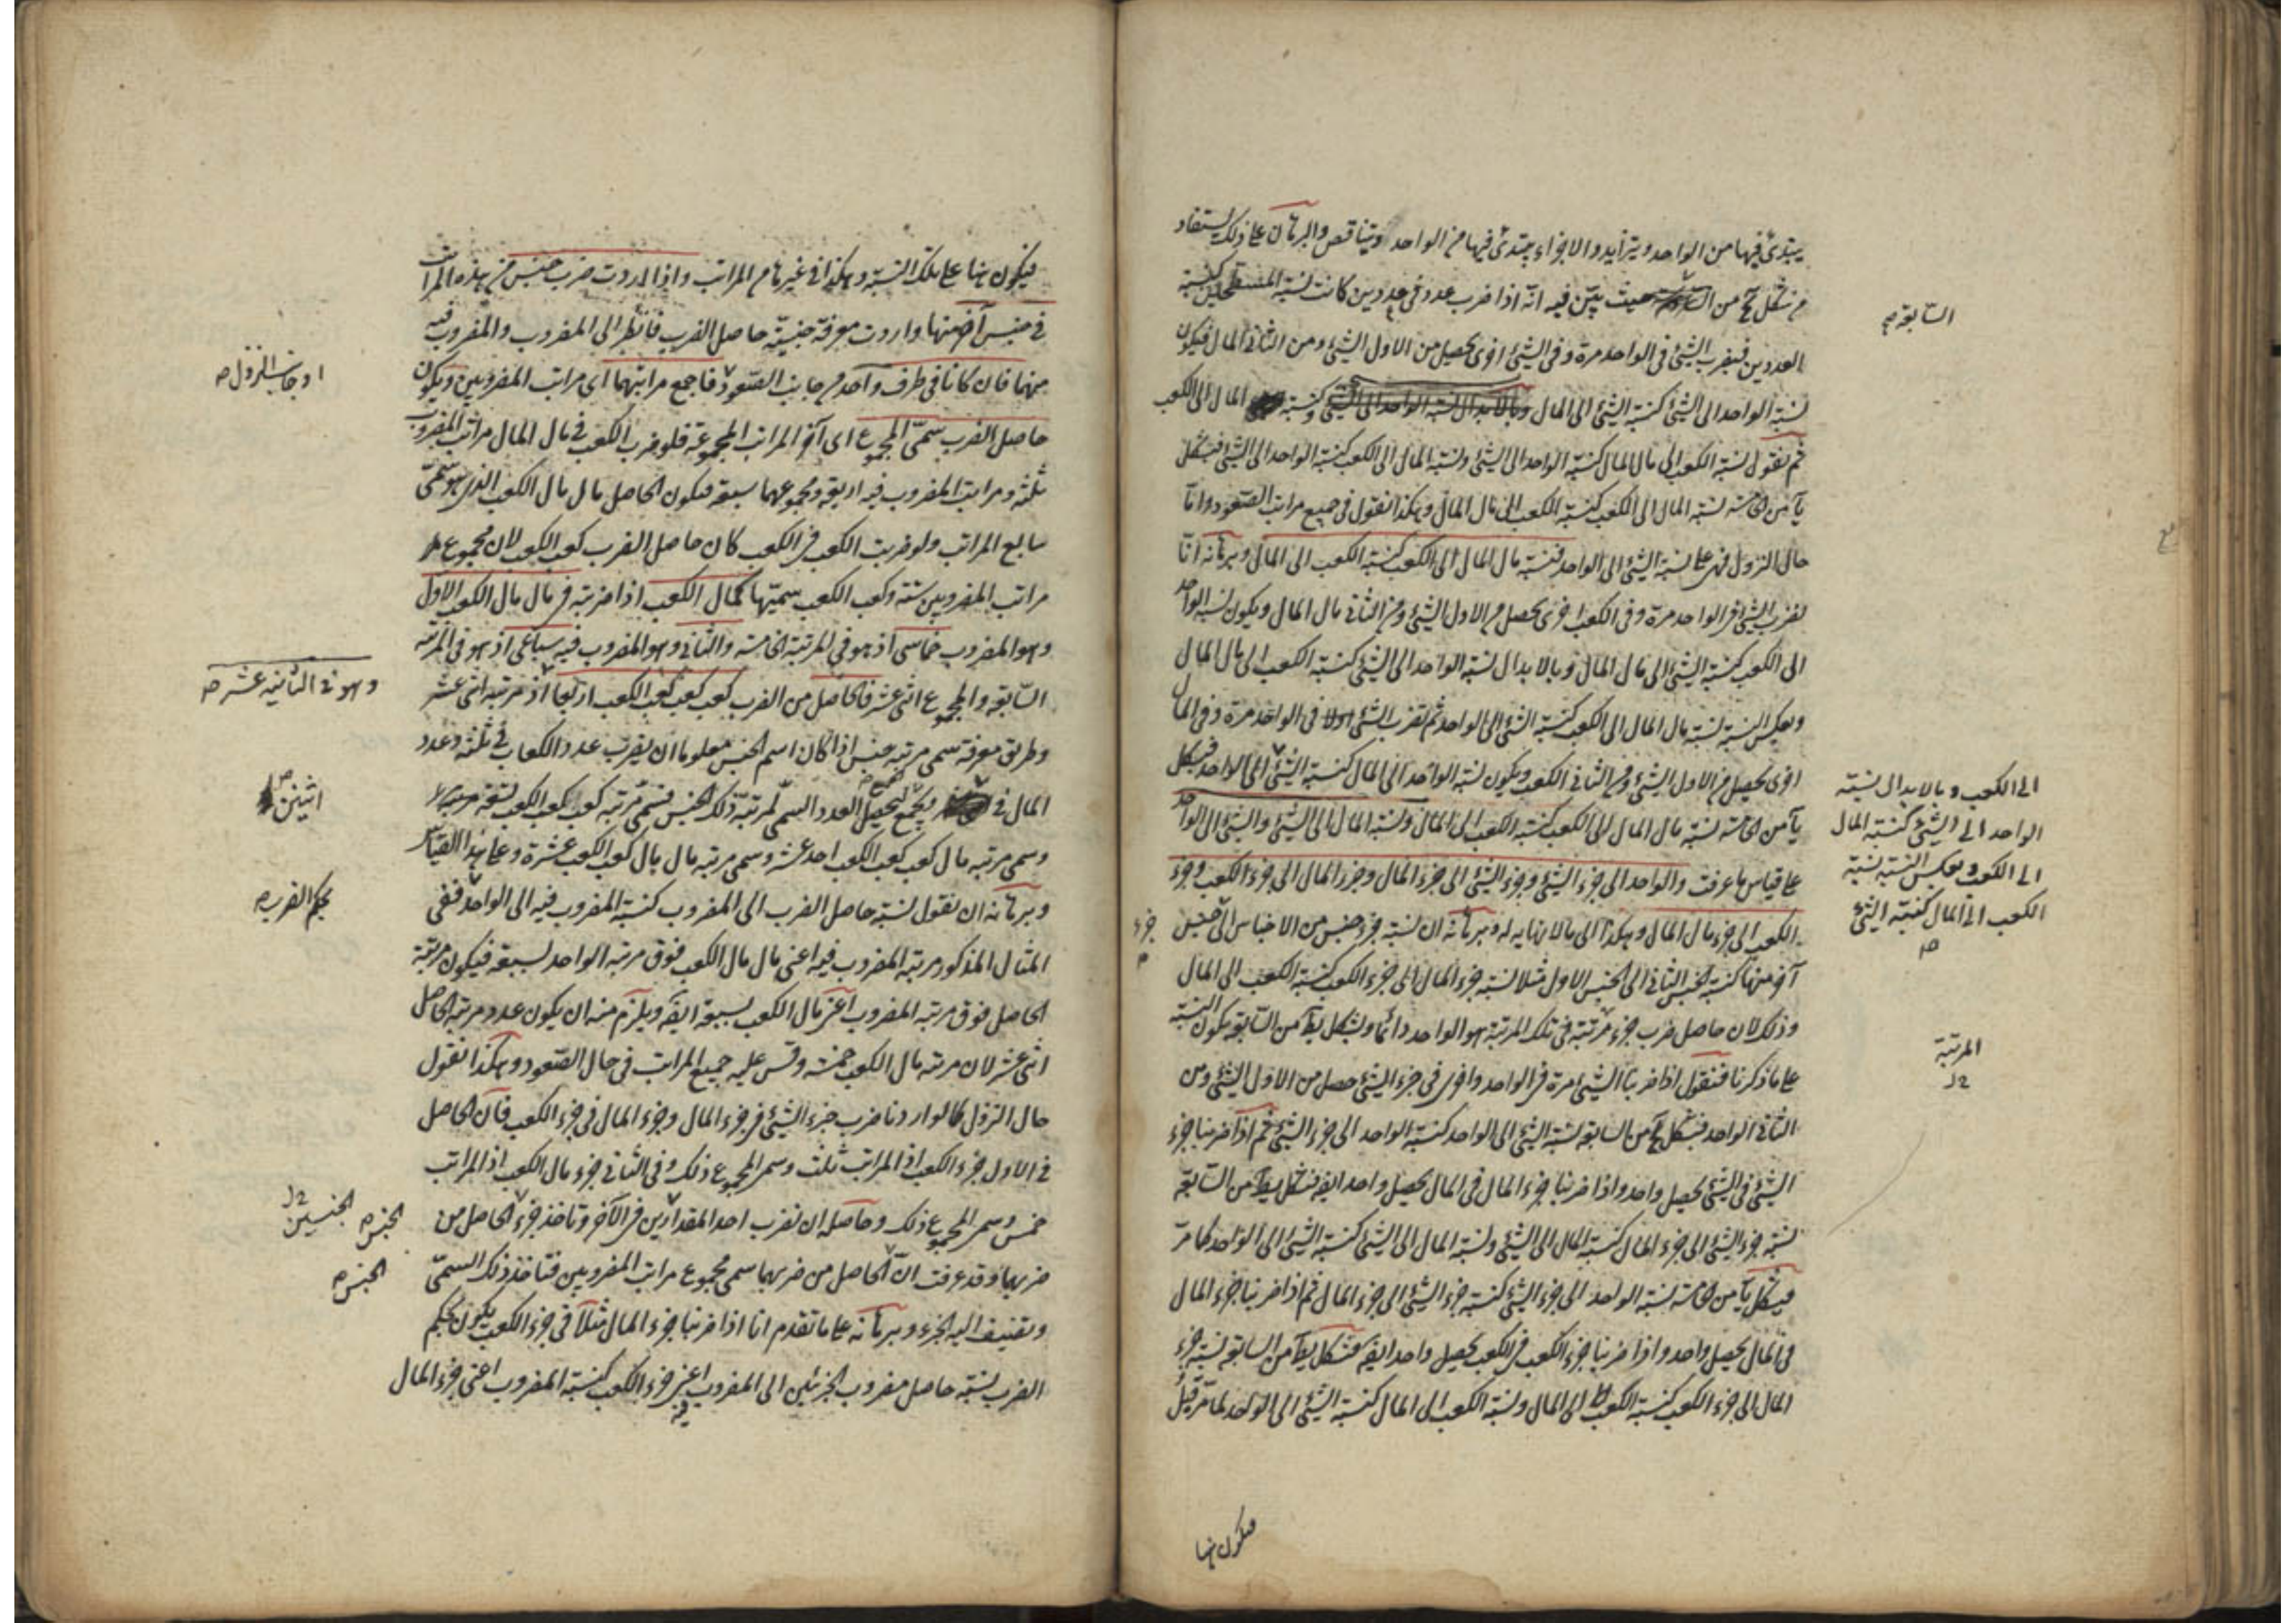 يبتدئ فيها من الواحد ويتزايد والاجزاء يبتدئ فيها من الواحد ويتناقص والبرهان على ذلك يستفاد
من شكل من حيث بين فيه انه اذا ضرب عدد في عددين كانت نسبة المسطحين كنسبة
السابعة صح
العددين فيضرب الشئ في الواحد مرة وفى الشئ اخرى يحصل من الاول الشئ ومن الثانى المال فيكون
نسبة الواحد الى الشئ كنسبة الشئ الى المال وبالابدال نسبة الواحد الى الشئ وكنسبة المال الى الكعب
ثم نقول نسبة الكعب الى مال المال كنسبة الواحد الى الشئ ونسبة المال الى الكعب كنسبة الواحد الى الشئ فبشكل
يا من الخامسة نسبة المال الى الكعب كنسبة الكعب الى مال المال وهكذا نقول في جميع مراتب الصعود واما
حال النزول فهى على نسبة الشئ الى الواحد فنسبة مال المال الى الكعب كنسبة الكعب الى المال وبرهانه انا
نضرب الشئ فى الواحد مرة وفى الكعب اخرى يحصل من الاول الشئ ومن الثانى مال المال ويكون نسبة الواحد
الى الكعب كنسبة الشئ الى مال المال وبالابدال نسبة الواحد الى الشئ كنسبة الكعب الى مال المال
وبعكس النسبة نسبة مال المال الى الكعب كنسبة الشئ الى الواحد ثم نضرب الشئ اولا فى الواحد مرة وفى المال
اخرى يحصل من الاول الشئ ومن الثانى الكعب ويكون نسبة الواحد الى المال كنسبة الشئ الى الواحد فبشكل
الى الكعب وبالابدال نسبة
الواحد الى الشئ كنسبة المال
الى الكعب وبعكس النسبة نسبة
الكعب الى المال كنسبة الشئ
صح
يا من الخامسة نسبة مال المال الى الكعب كنسبة الكعب الى المال ونسبة المال الى الشئ والشئ الى الواحد
على قياس ما عرفت والواحد الى جزء الشئ وجزء الشئ الى جزء المال وجزء المال الى جزء الكعب وجزء
الكعب الى جزء مال المال وهكذا الى مالا نهاية له وبرهانه ان نسبة جزء جنس من الاجناس الى جنس
جزء
آخر منها كنسبة الجنس الثانى الى الجنس الاول مثلا نسبة جزء المال الى جزء الكعب كنسبة الكعب الى المال
وذلك لان حاصل ضرب جزء مرتبة فى تلك المرتبة هو الواحد دائما وبشكل يط من السابعة يكون النسبة
المرتبة
على ما ذكرنا فنقول اذا ضربنا الشئ مرة فى الواحد واخرى فى جزء الشئ حصل من الاول الشئ ومن
الثانى الواحد فبشكل من السابعة نسبة الشئ الى الواحد كنسبة الواحد الى جزء الشئ ثم اذا ضربنا جزء
الشئ فى الشئ يحصل واحد واذا ضربنا جزء المال فى المال يحصل واحد ايضا فبشكل يط من السابعة
نسبة جزء الشئ الى جزء المال كنسبة المال الى الشئ ونسبة المال الى الشئ كنسبة الشئ الى الواحد كما مر
فبشكل يا من الخامسة نسبة الواحد الى جزء الشئ كنسبة جزء الشئ الى جزء المال ثم اذا ضربنا جزء المال
فى المال يحصل واحد واذا ضربنا جزء الكعب فى الكعب يحصل واحد ايضا فبشكل يط من السابعة نسبة جزء
المال الى جزء الكعب كنسبة الكعب الى المال ونسبة الكعب الى المال كنسبة الشئ الى الواحد لما مر قبل
فيكون هنا
فيكون هنا على تلك النسبة وهكذا فى غيرها من المراتب واذا اردت ضرب جنس من هذه المراتب
فى جنس آخر منها واردت معرفة جنسية حاصل الضرب فانظر الى المضروب والمضروب فيه
منهما فان كانا فى طرف واحد من جانب الصعود فاجمع مراتبهما اى مراتب المضروبين ويكون
او جانب النزول صح
حاصل الضرب سمى المجموع اى آخر المراتب المجموعة فلو ضرب الكعب فى مال المال مراتب المضروب
ثلثة ومراتب المضروب فيه اربعة ومجموعهما سبعة فيكون الحاصل مال مال الكعب الذى هو سمى
سابع المراتب ولو ضربت الكعب فى الكعب كان حاصل الضرب كعب الكعب لان مجموع
مراتب المضروبين ستة وكعب الكعب سميتها كمال الكعب اذا ضربته فى مال مال الكعب الاول
وهو المضروب خماسى اذ هو فى المرتبة الخامسة والثانى وهو المضروب فيه سباعى اذ هو فى المرتبة
السابعة والمجموع اثنى عشر فالحاصل من الضرب كعب كعب كعب الكعب اربعا اذ مرتبة اثنى عشر
وهو فى الثانية عشر صح
وطريق معرفة سمى مرتبة جنس اذا كان اسم الجنس معلوما ان يضرب عدد الكعاب فى ثلثة وعدد
المال فى ويجمع ليحصل العدد السمى لمرتبة ذلك الجنس فسمى مرتبة كعب كعب الكعب تسعة
اثنين صح
وسمى مرتبة مال كعب كعب الكعب احد عشر وسمى مرتبة مال مال كعب الكعب عشرة وعلى هذا القياس
وبرهانه ان نقول نسبة حاصل الضرب الى المضروب كنسبة المضروب فيه الى الواحد ففى
بحكم الضرب صح
المثال المذكور مرتبة المضروب فيه اعنى مال مال الكعب فوق مرتبة الواحد بسبعة فيكون مرتبة
الحاصل فوق مرتبة المضروب اعنى مال الكعب بسبعة ايضا ويلزم منه ان يكون عدد مرتبة الحاصل
اثنى عشر لان مرتبة مال الكعب خمسة وقس عليه جميع المراتب فى حال الصعود وهكذا نقول
حال النزول كما لو اردنا ضرب جزء الشئ فى جزء المال وجزء المال فى جزء الكعب فان الحاصل
فى الاول جزء الكعب اذ المراتب ثلث وسمى المجموع ذلك وفى الثانى جزء مال الكعب اذ المراتب
خمس وسمى المجموع ذلك وحاصله ان نضرب احد المقدارين فى الآخر وتاخذ جزء الحاصل من
الجنسين
الجنس صح
ضربهما وقد عرفت ان الحاصل من ضربهما سمى مجموع مراتب المضروبين فتاخذ ذلك السمى
الجنس صح
وتضيف اليه الجزء وبرهانه على ما تقدم انا اذا ضربنا جزء المال مثلا فى جزء الكعب يكون بحكم
الضرب نسبة حاصل مضروب الجزئين الى المضروب فيه اعنى جزء الكعب كنسبة المضروب اعنى جزء المال